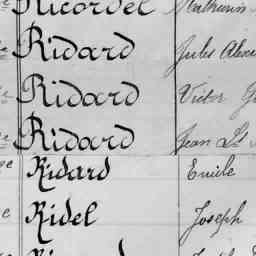 Ricordel Mathurin
Ridard Jules
Ridard Victor
Ridard Jean
Ridard Emile
Ridel Joseph